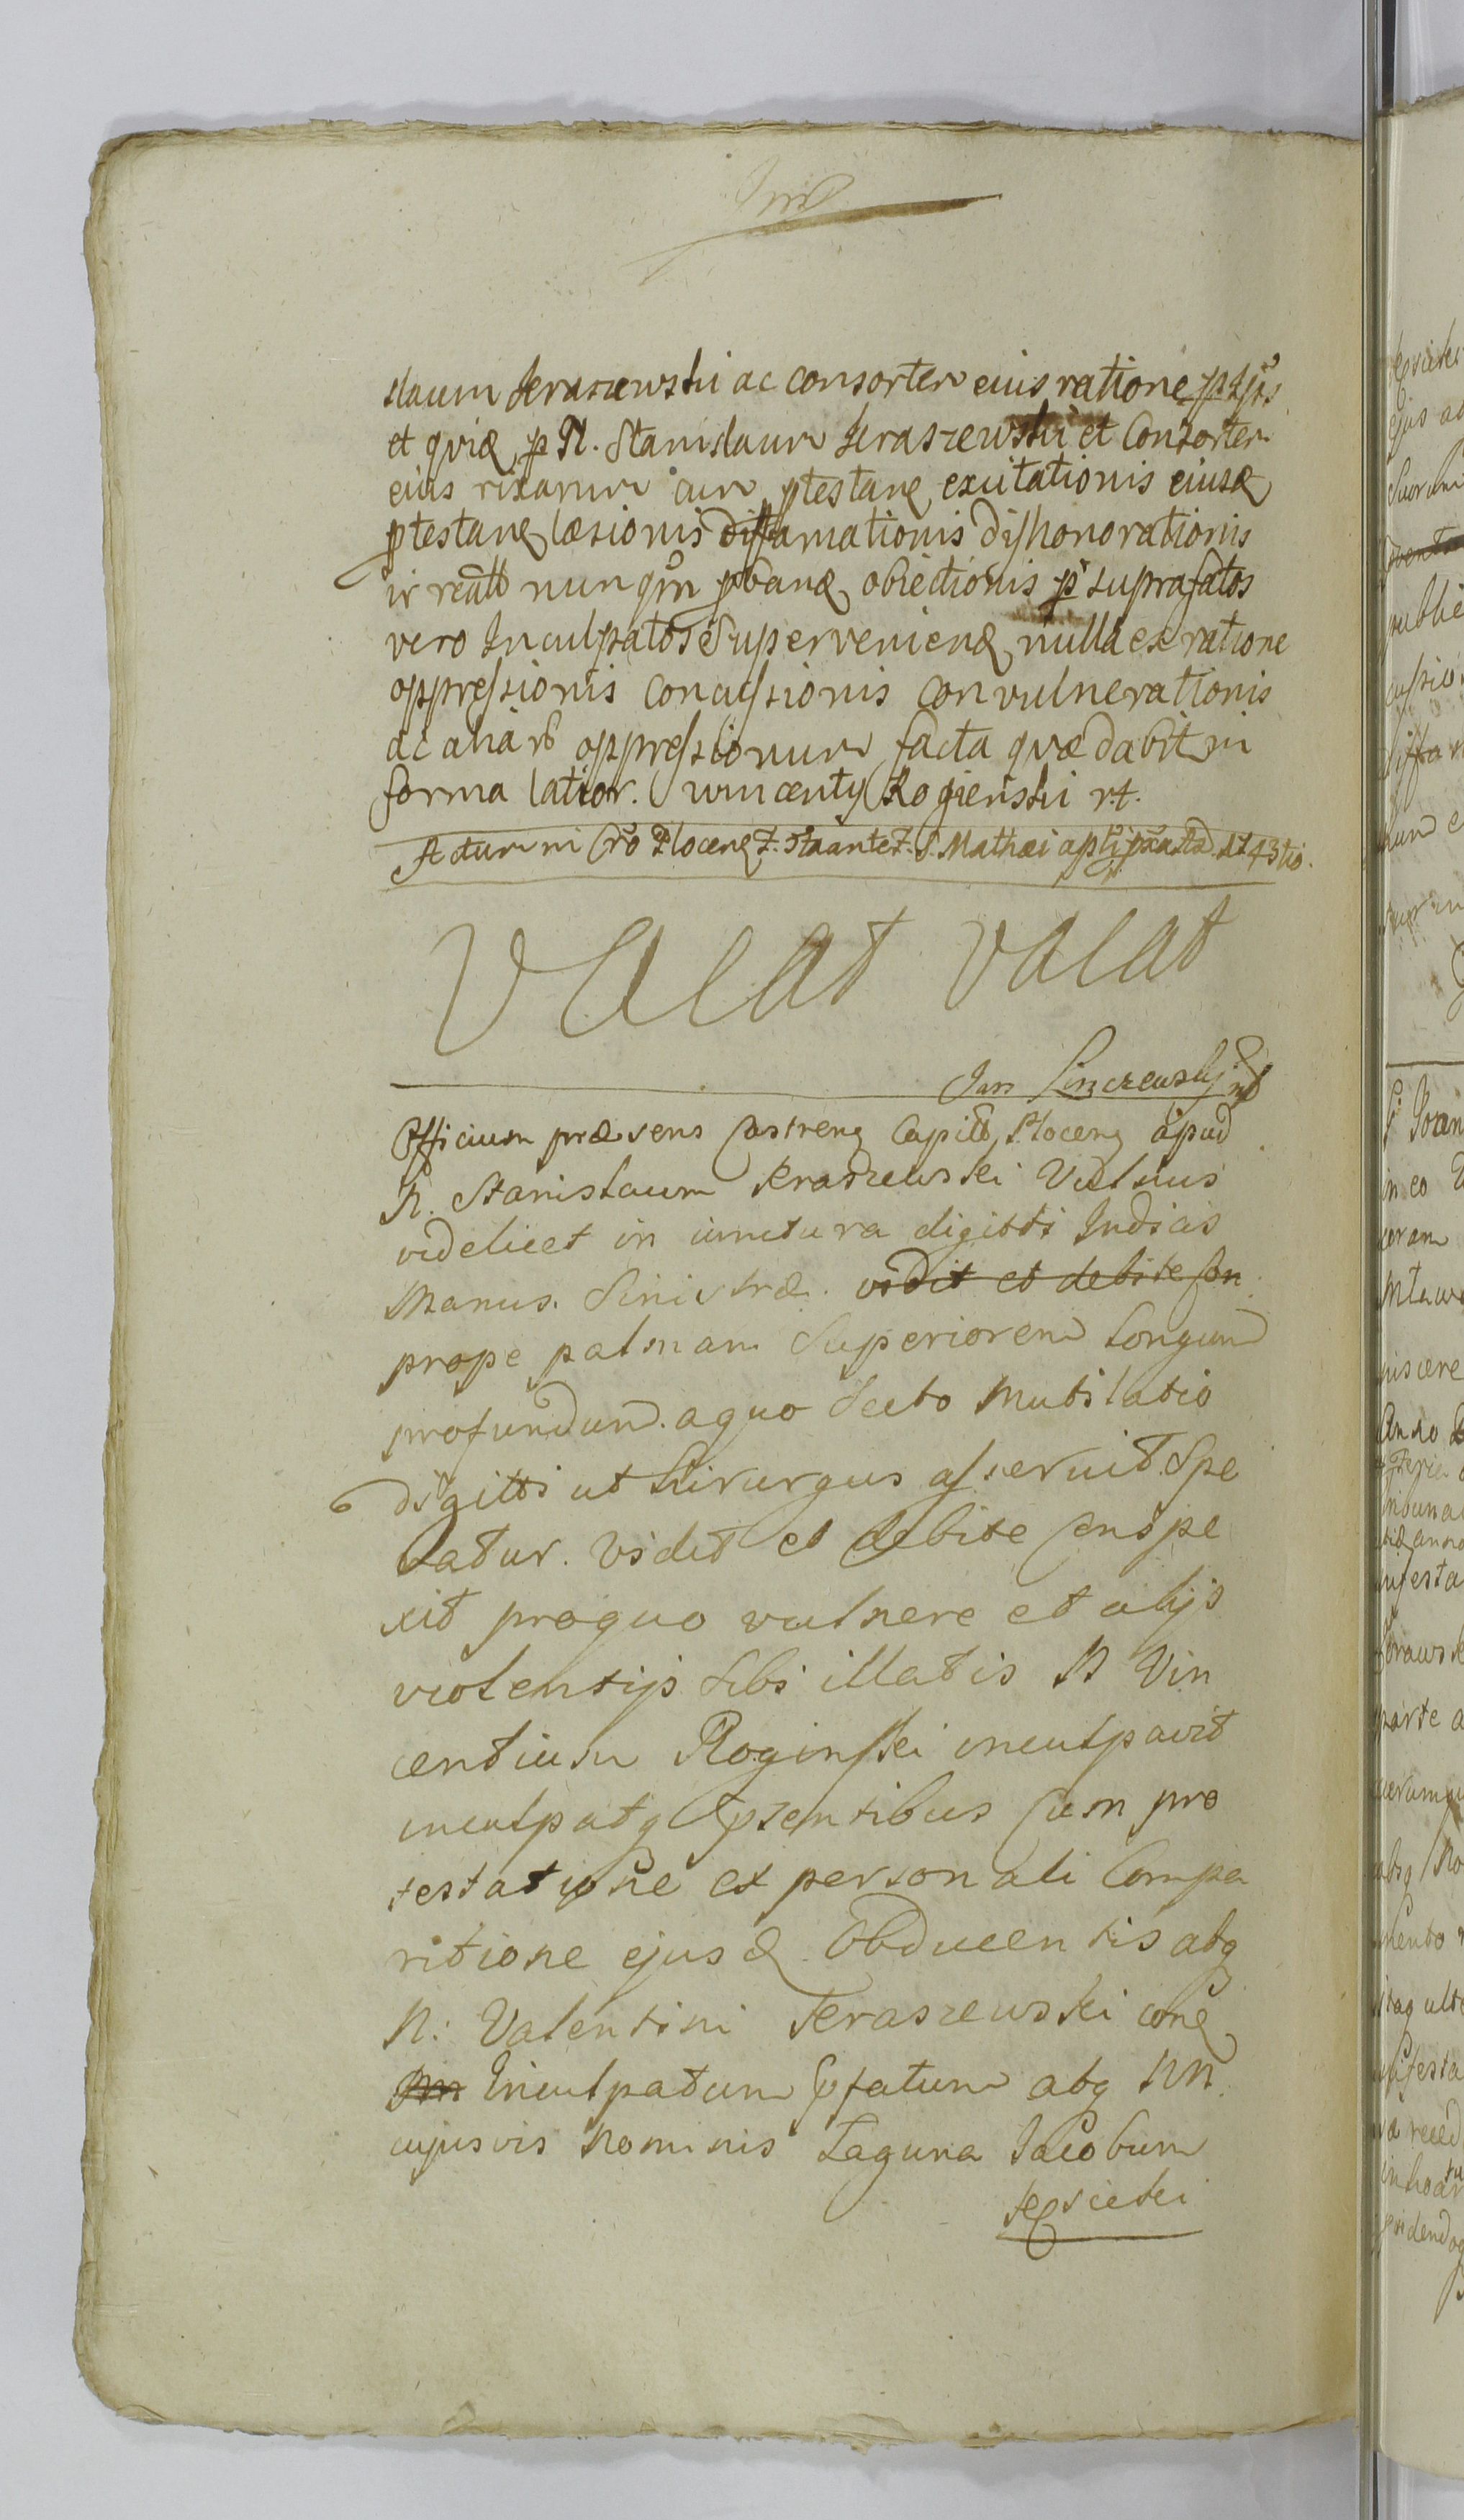 slaum Kraszewski ac consortem eius ratione
et qviæ p N. Stanislaum Kraszewski et Consortem
eius rixarum cum ptestane excitationis eiusd
ptestane læsionis diffamationis dishonorationis
nunqm pband obiectionis p suprafatos
vero Inculpatos Superveniend nulla ex ratione
oppressionis concussionis convulnerationis
ac aliarum oppressionum facta qvæ dabit in
forma latior. Wincenty Rogienski
Actum in Cro Plocen S. Mathæi apli 1743tio.
Vacat vacat
Jan
Officium præsens Castren Capitl Plocen apud
N. Stanislaum Kraszewski Vulnus
videlicet in iunctura digitti Indicis
Manus. Sinistræ. vidit et debite con
prope palmam Superiorem longum
profundum. a quo Secto Mutilatio
digitti ut Chirurgus asseruit. Spe
ratur. Vidit et debite Conspe
xit pro quo vulnere et alijs
violentijs Sibi illatis N Vin
centium Roginski inculpavit
inculpatq psentibus Cum pro
testatione ex personali Compa
ritione ejusd Obducentis atq
N: Valentini Kraszewski con
Inculpatum pfatum atq NN
cujusvis Nominis Laguna Jacobum